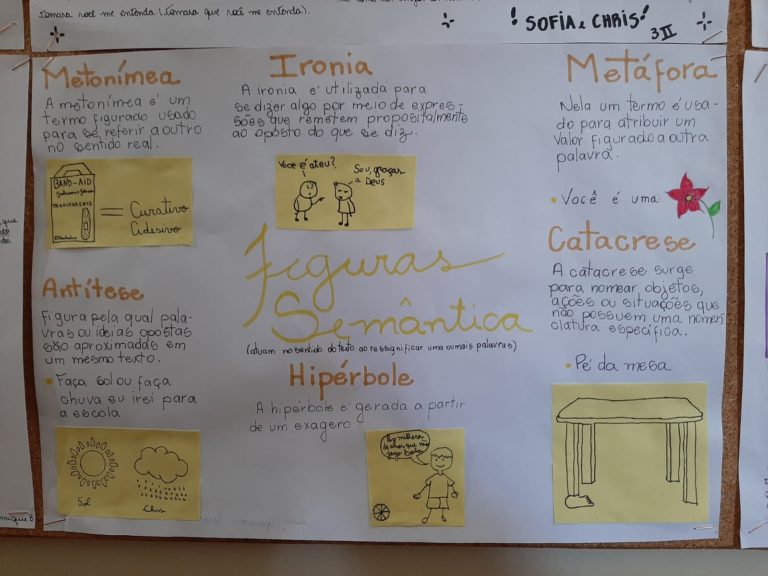 ! SOFIA e CHRIS !
3ºII
Metonímea
A metonímea é um
termo figurado usado
para se referir a outro
no sentido real.
BAND-AID
TRANSPARENTE
= Curativo
Adesivo
Ironia
A ironia é utilizada para
se dizer algo por meio de expres-
sões que remetem propositalmente
ao oposto do que se diz.
Você é ateu?
Sou, graças
a Deus
Metáfora
Nela um termo é usa-
do para atribuir um
valor figurado a outra
palavra.
• Você é uma
Figuras
Semântica
(atuam no sentido do texto ao ressignificar uma ou mais palavras)
Antítese
Figura pela qual pala-
vras ou ideias opostas
são aproximadas em
um mesmo texto.
• Faça sol ou faça
chuva eu irei para
a escola
Sol
Chuva
Hipérbole
A hipérbole é gerada a partir
de um exagero.
Catacrese
A catacrese surge
para nomear objetos,
ações ou situações que
não possuem uma nomen
clatura específica.
• Pé da mesa